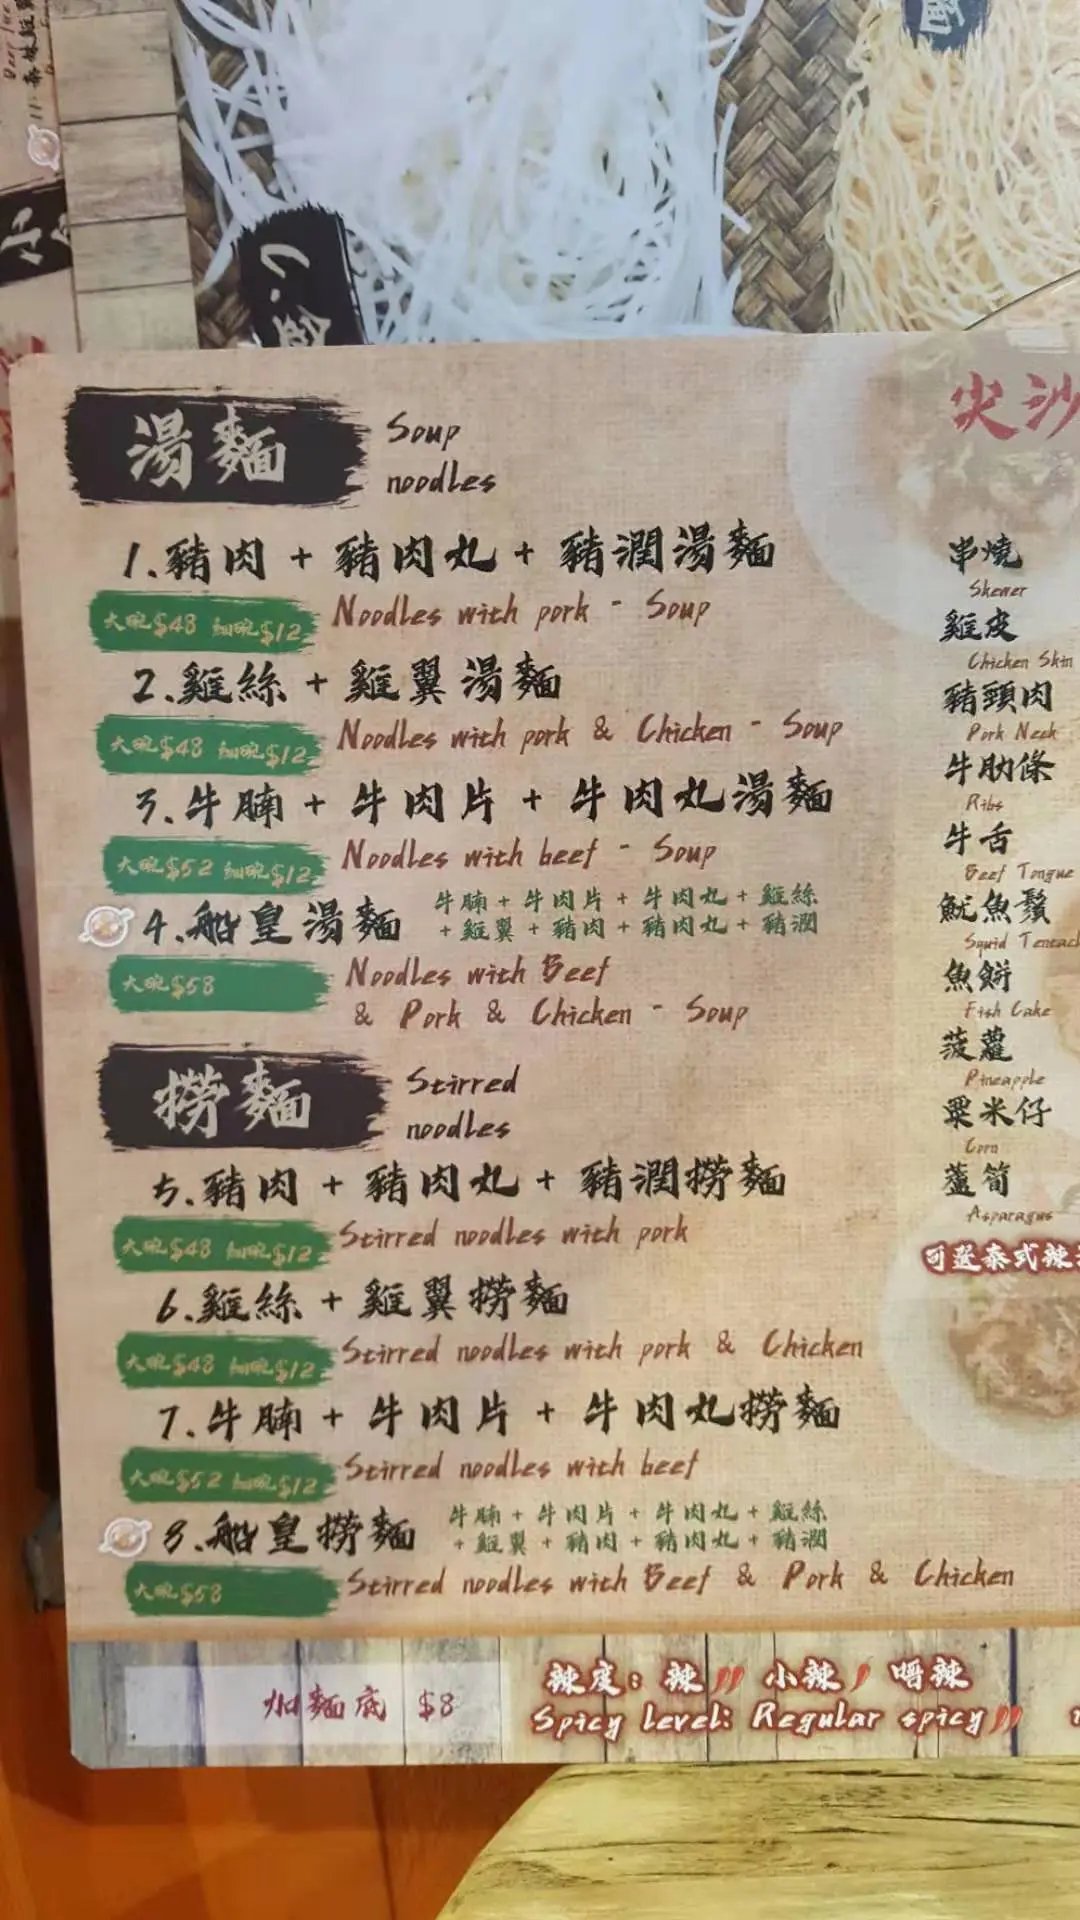 湯麵
Soup
noodles
1.豬肉 + 豬肉丸 + 豬潤湯麵
大碗$48 細碗$12
Noodles with pork - Soup
2.雞絲 + 雞翼湯麵
大碗$48 細碗$12
Noodles with pork & Chicken - Soup
3.牛腩 + 牛肉片 + 牛肉丸湯麵
大碗$52 細碗$12
Noodles with beef - Soup
4.船皇湯麵
牛腩 + 牛肉片 + 牛肉丸 + 雞絲
+ 雞翼 + 豬肉 + 豬肉丸 + 豬潤
大碗$58
Noodles with Beef
& Pork & Chicken - Soup
撈麵
Stirred
noodles
5.豬肉 + 豬肉丸 + 豬潤撈麵
大碗$48 細碗$12
Stirred noodles with pork
6.雞絲 + 雞翼撈麵
大碗$48 細碗$12
Stirred noodles with pork & Chicken
7.牛腩 + 牛肉片 + 牛肉丸撈麵
大碗$52 細碗$12
Stirred noodles with beef
8.船皇撈麵
牛腩 + 牛肉片 + 牛肉丸 + 雞絲
+ 雞翼 + 豬肉 + 豬肉丸 + 豬潤
大碗$58
Stirred noodles with Beef & Pork & Chicken
加麵底 $8
辣度: 辣 小辣 唔辣
Spicy Level: Regular spicy
尖沙
串燒
Skewer
雞皮
Chicken Skin
豬頸肉
Pork Neck
牛肋條
Ribs
牛舌
Beef Tongue
魷魚鬚
Squid
魚餅
Fish Cake
菠蘿
Pineapple
粟米仔
Corn
蘆筍
Asparagus
可選泰式辣